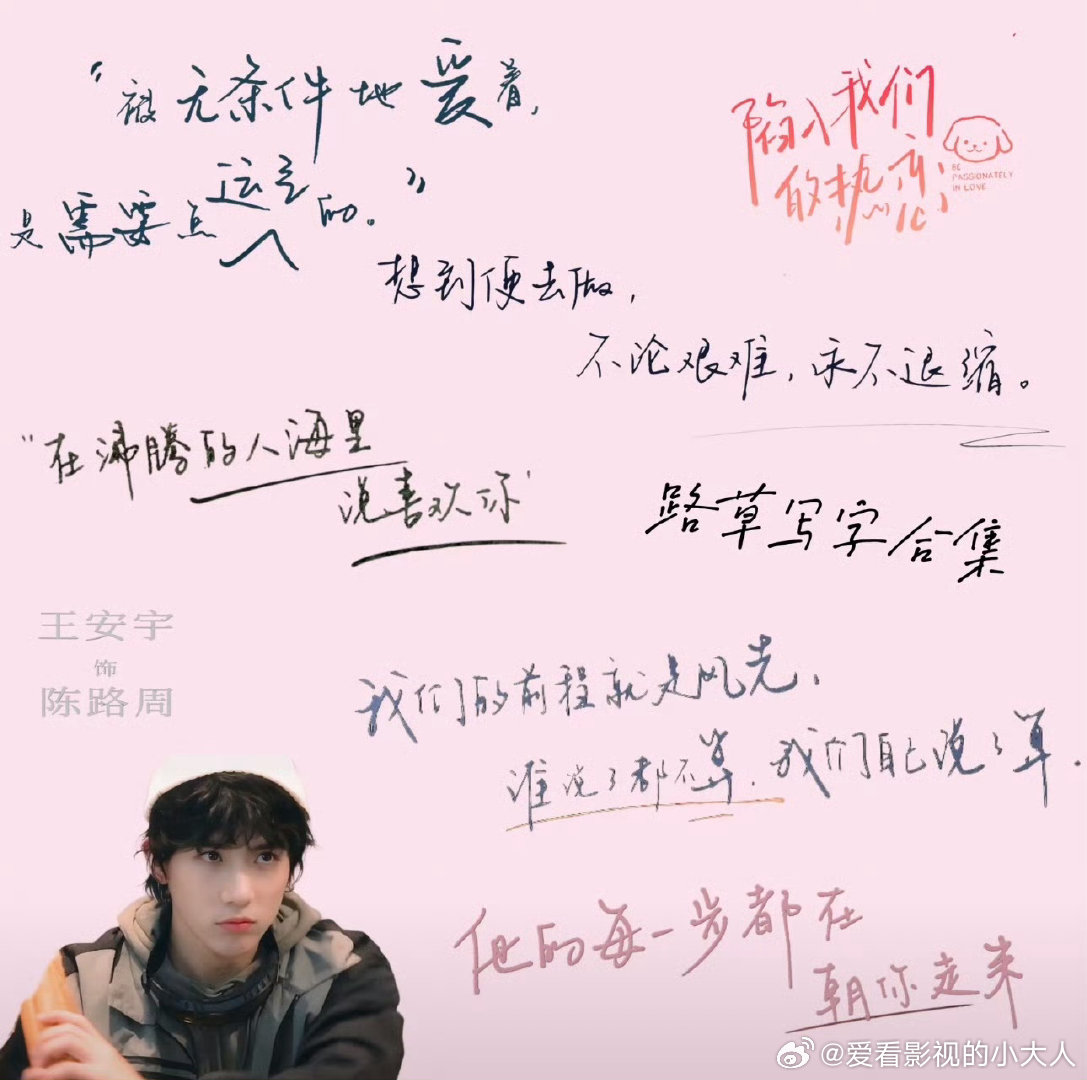 “被无条件地爱着，
是需要点运气的。”
陷入我们
的热恋
BE
PASSIONATELY
IN LOVE
想到便去做，
不论艰难，永不退缩。
“在沸腾的人海里
说喜欢你”
路草写字合集
王安宇
饰
陈路周
我们的前程就是风光，
谁说了都不算，我们自己说了算.
他的每一步都在
朝你走来
@爱看影视的小大人